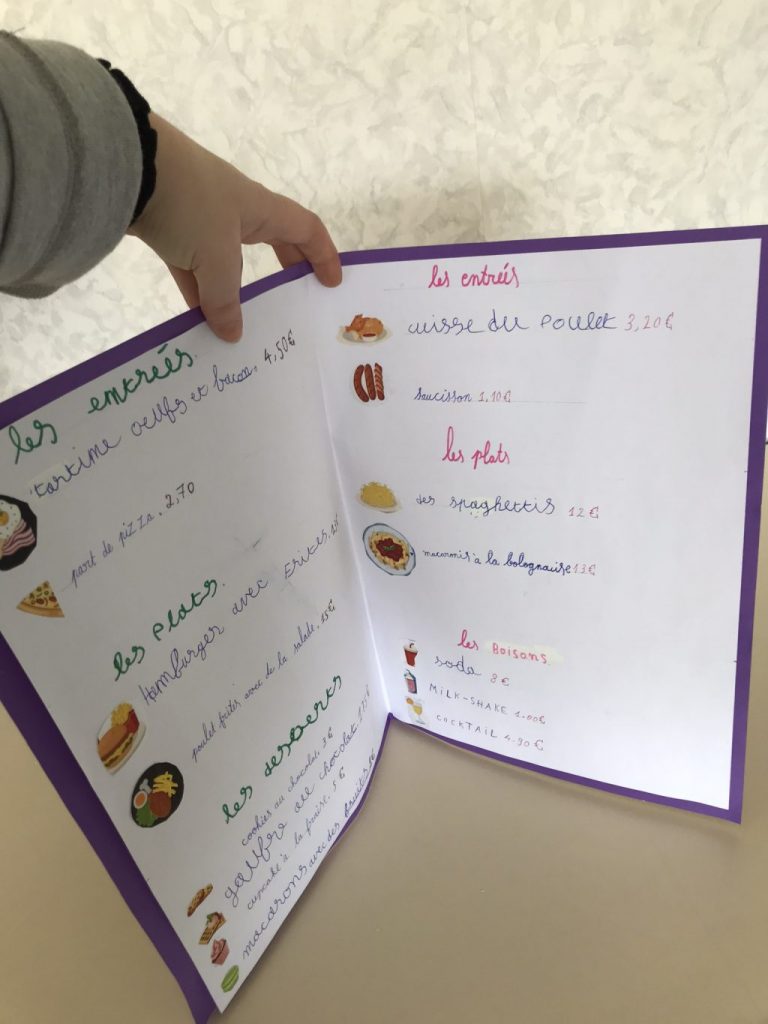 les entrées.
tartime oeufs et bacon. 4,50€
part de pizza. 2,70
les plats.
Hamburger avec Frites.
poulet frites avec de la salade. 15€
les desserts
cookies au chocolat. 3€
gaufre au chocolat.
cupcake à la fraise. 5€
macarons avec des fruits
les entreés
cuisse du poulet 3,20€
saucisson 1,10€
les plats
des spaghettis 12€
macaronis à la bolognaise 13€
les Boisons
soda 8€
MILK-SHAKE 1.00€
COCKTAIL 4.90€